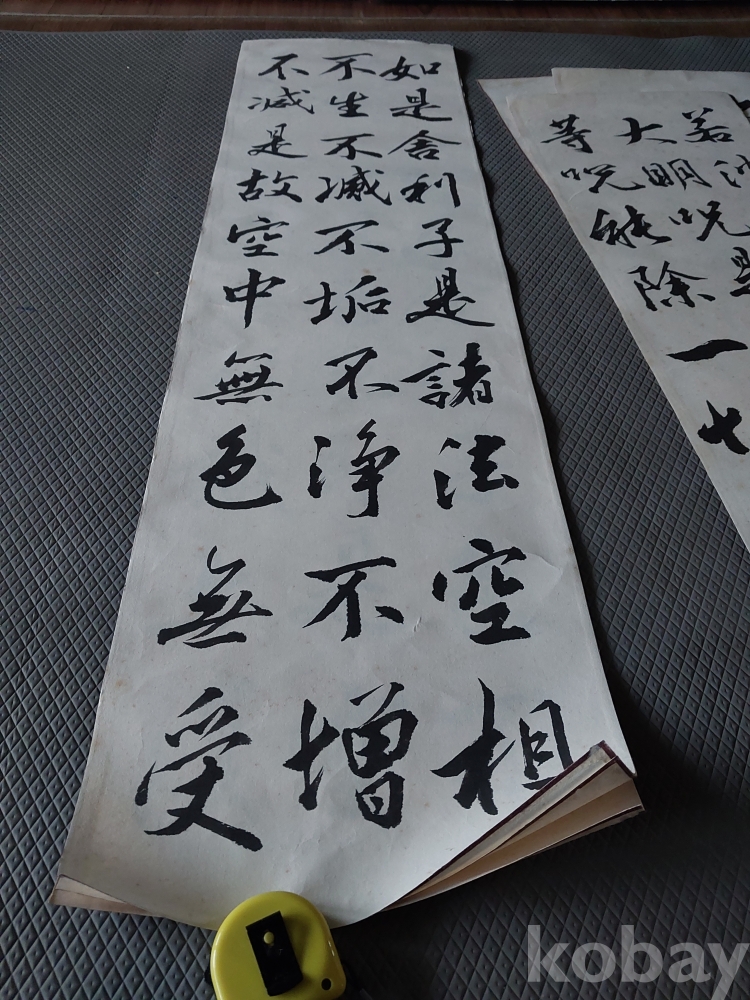 如是舍利子是諸法空相
不生不滅不垢不淨不增
不減是故空中無色無受
若
大明呪是
等呪能除一
kobay